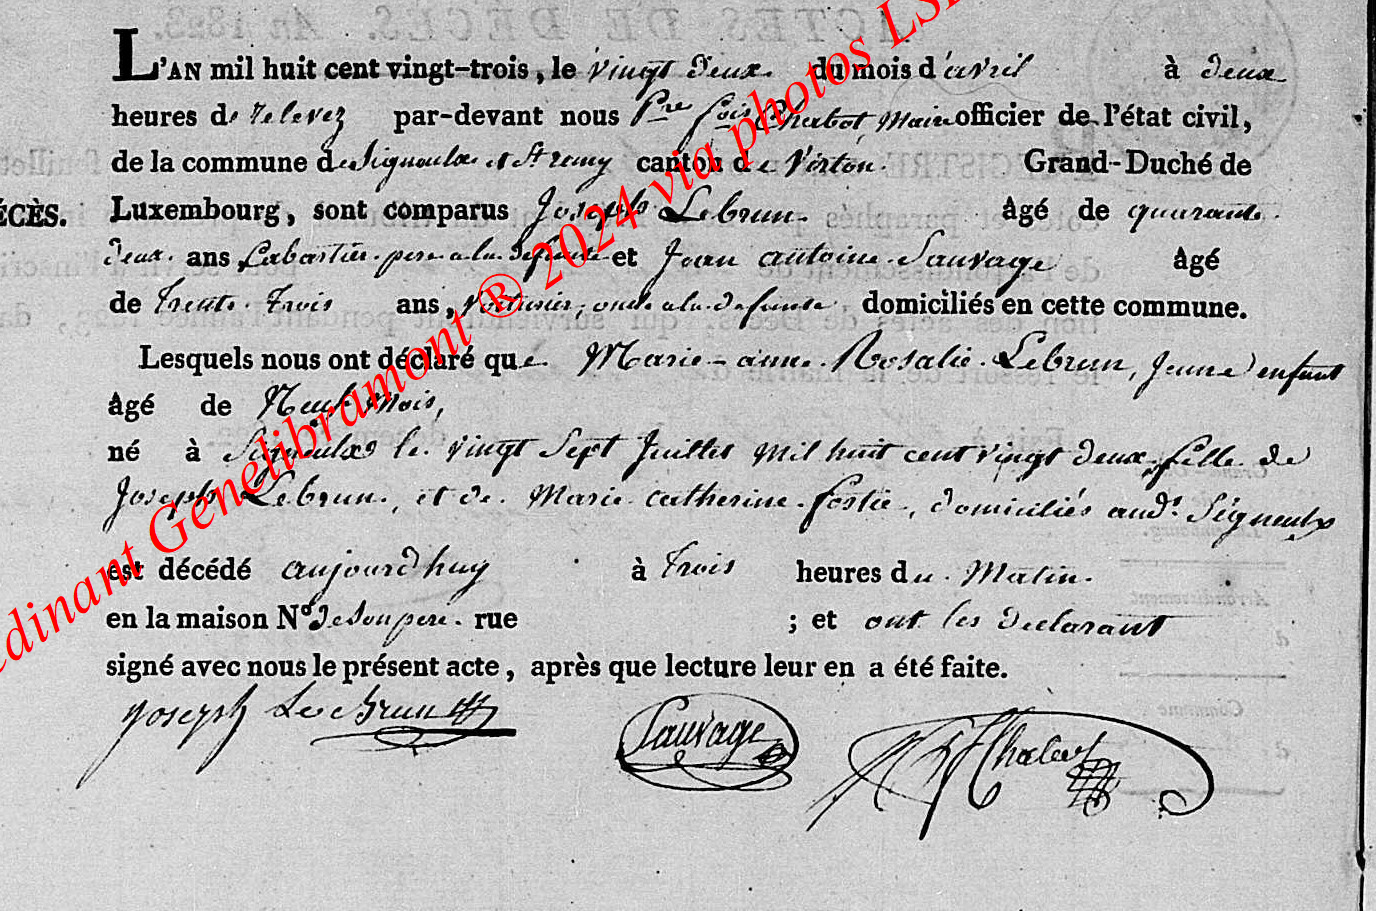 L'AN mil huit cent vingt-trois, le vingt deux du mois d'avril à deux
heures de relevez par-devant nous Pre fois Chabot Maire officier de l'état civil,
de la commune de Signeulx et St remy canton de Virton Grand-Duché de
ÉCÈS. Luxembourg, sont comparus Joseph Lebrun. âgé de quarante
deux ans Cabartier pere a la defunte et Jean antoine Sauvage âgé
de trente trois ans, voiturier, oncle a la defunte domiciliés en cette commune.
Lesquels nous ont déclaré que Marie-anne Rosalie Lebrun, jeune enfant
âgé de Neuf Mois,
né à Signeulx le vingt Sept Juillet mil huit cent vingt deux, fille de
Joseph Lebrun, et de Marie catherine fostie, domiciliés aud. Signeulx
est décédé aujourd'huy à trois heures du Matin.
en la maison N° de son pere. rue ; et ont les declarant
signé avec nous le présent acte, après que lecture leur en a été faite.
Joseph Le Brun Sauvage Chabot
edinant Genelibramont ® 2024 via photos LS